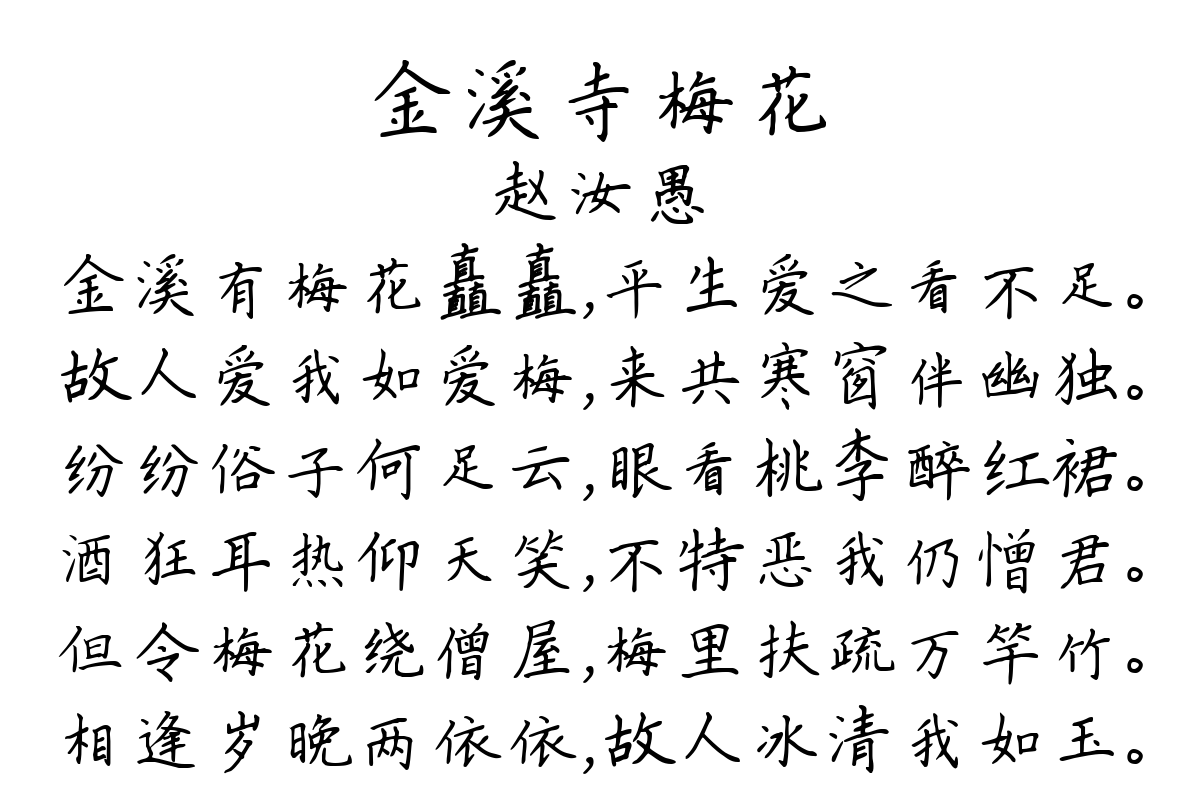 金溪寺梅花
赵汝愚
金溪有梅花矗矗,平生爱之看不足。
故人爱我如爱梅,来共寒窗伴幽独。
纷纷俗子何足云,眼看桃李醉红裙。
酒狂耳热仰天笑,不特恶我仍憎君。
但令梅花绕僧屋,梅里扶疏万竿竹。
相逢岁晚两依依,故人冰清我如玉。